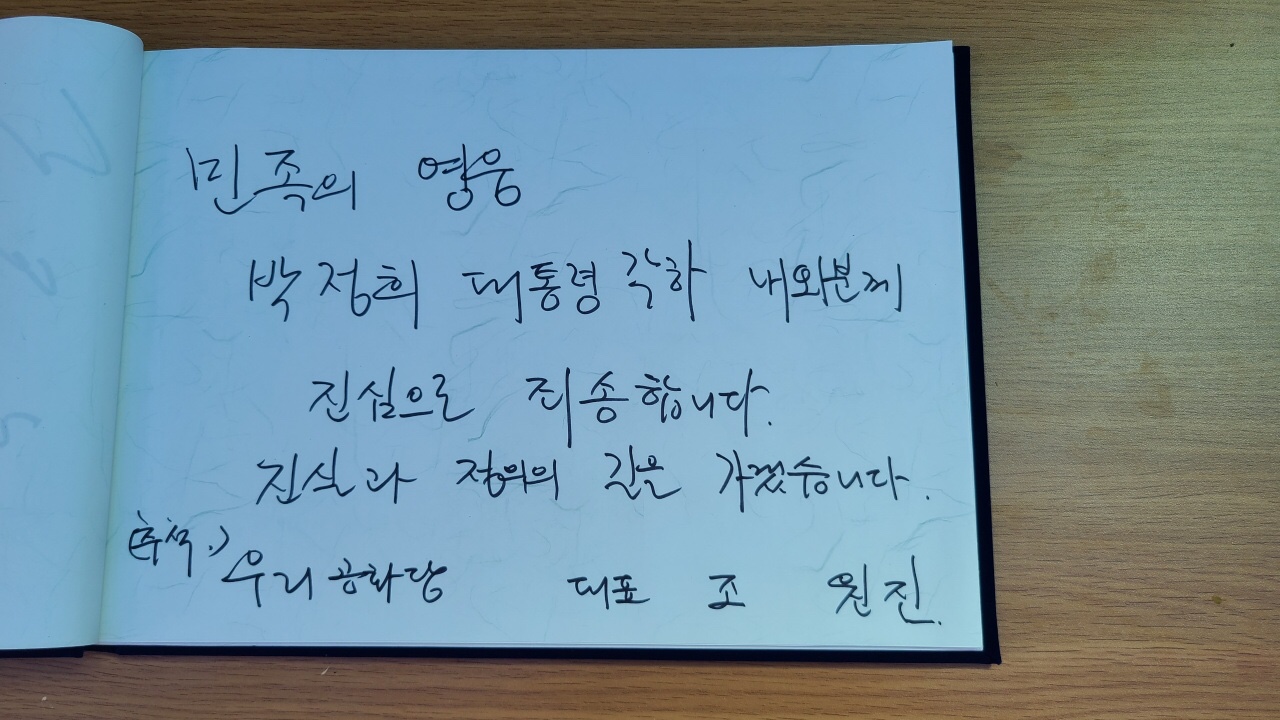 민족의 영웅
박정희 대통령각하 내외분께
진심으로 죄송합니다.
진실과 정의의 길을 가겠습니다.
(추석.) 우리공화당 대표 조 원진.